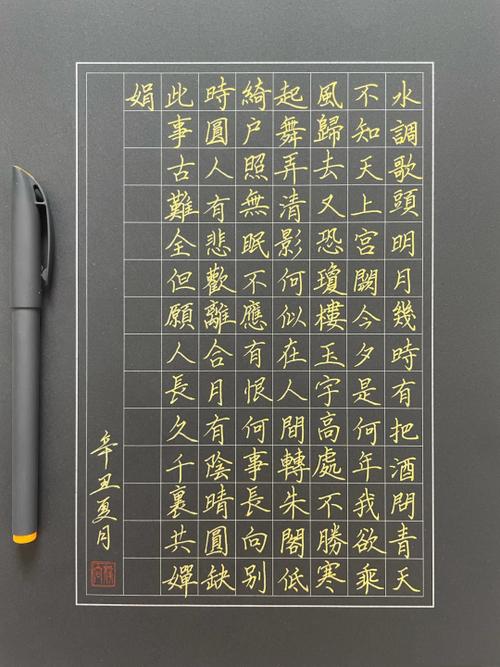 水調歌頭明月幾時有把酒問青天
不知天上宮闕今夕是何年我欲乘
風歸去又恐瓊樓玉宇高處不勝寒
起舞弄清影何似在人間轉朱閣低
綺户照無眠不應有恨何事長向别
時圓人有悲歡離合月有陰晴圓缺
此事古難全但願人長久千裏共嬋
娟
辛丑夏月